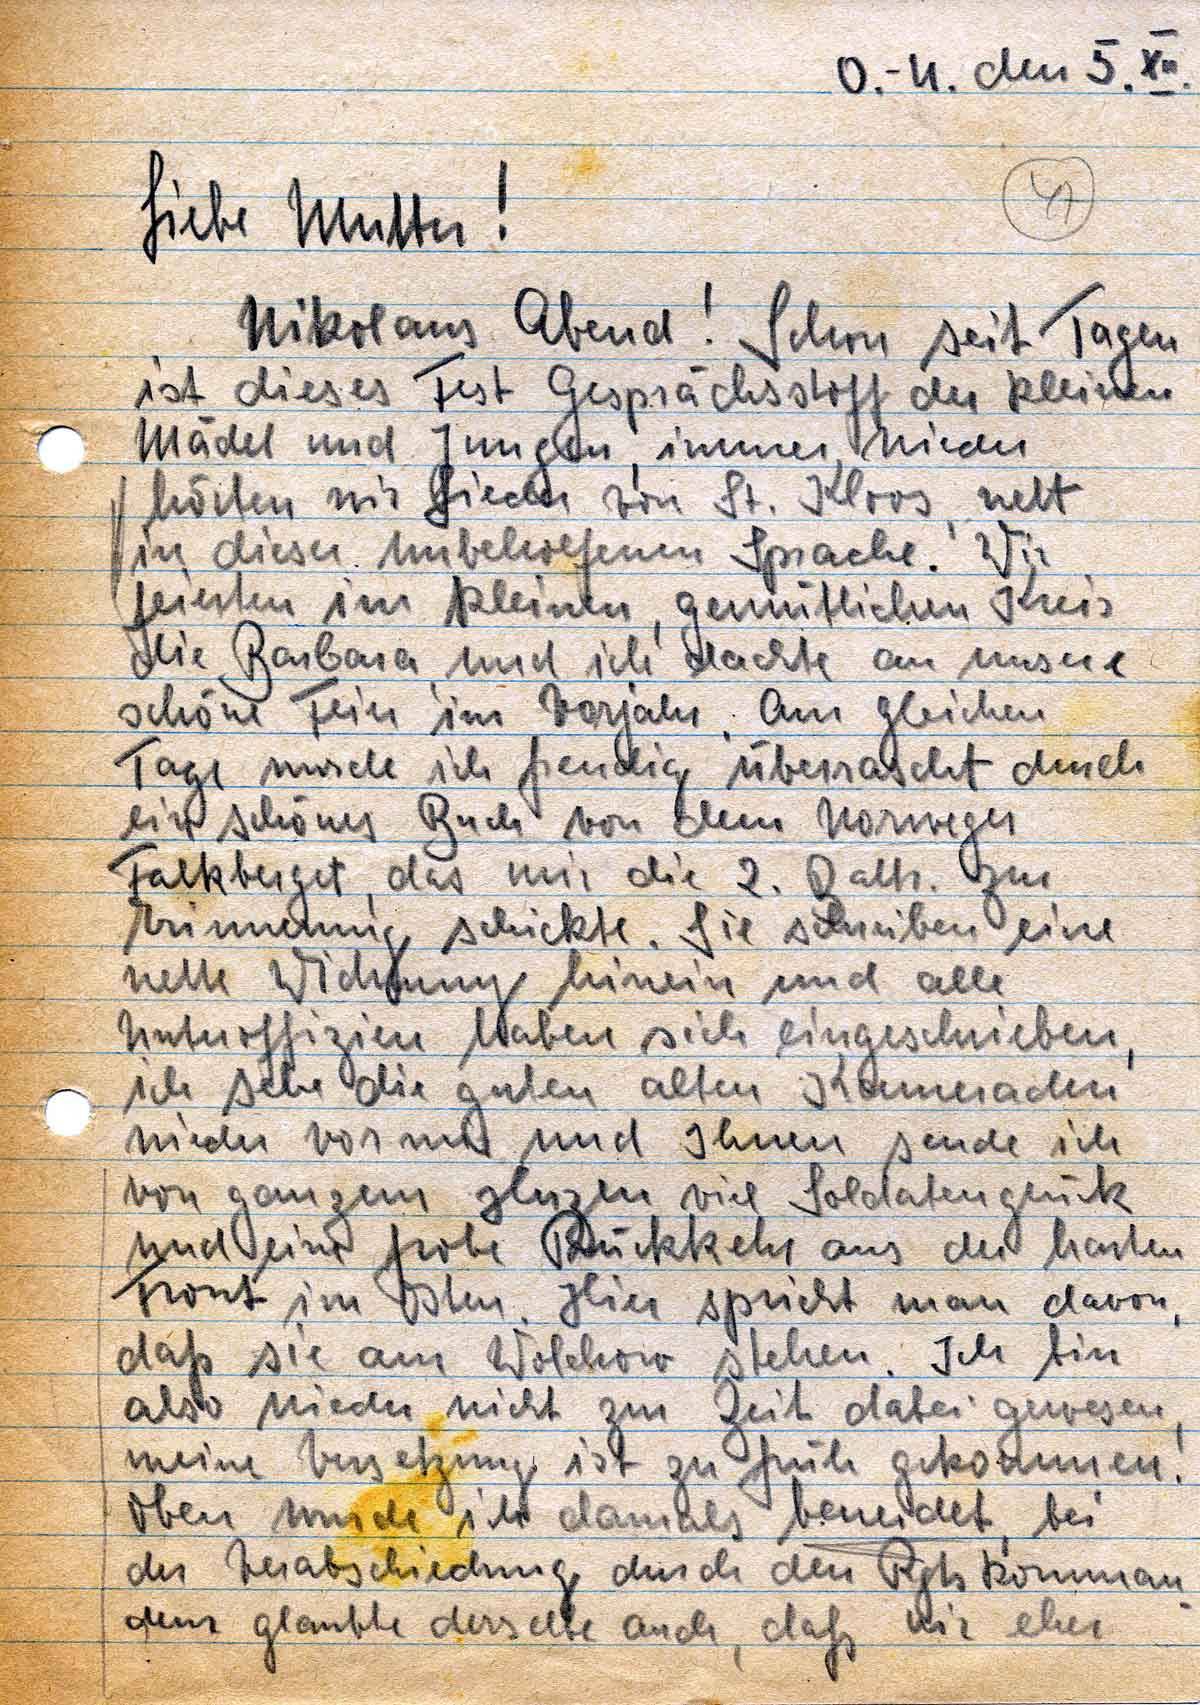 O.-U. den 5. XII.
47
Liebe Mutter!
Nikolaus Abend! Schon seit Tagen
ist dieses Fest Gesprächsstoff der kleinen
Mädel und Jungen, immer wieder
hörten wir Lieder von St. Kloos, nett
in dieser unbeholfenen Sprache! Wir
feierten im kleinen, gemütlichen Kreis
die Barbara und ich dachte an unsere
schöne Feier im Vorjahr. Am gleichen
Tage wurde ich freudig überrascht durch
ein schönes Buch von dem Norweger
Falkberget, das mir die 2. Battr. zur
Erinnerung schickte. Sie schreiben eine
nette Widmung hinein und alle
Unteroffizier haben sich eingeschrieben,
ich sehe die guten alten Kameraden
wieder vor mir und Ihnen sende ich
von ganzem Herzen viel Soldatenglück
und eine frohe Rückkehr aus der harten
Front im Osten. Hier spricht man davon,
daß sie am Wolchow stehen. Ich bin
also wieder nicht zur Zeit dabei gewesen,
meine Versetzung ist zu früh gekommen!
Oben wurde ich damals beneidet, bei
der Verabschiedung durch den Rgts Komman-
deur glaubte derselbe auch, daß wir eher